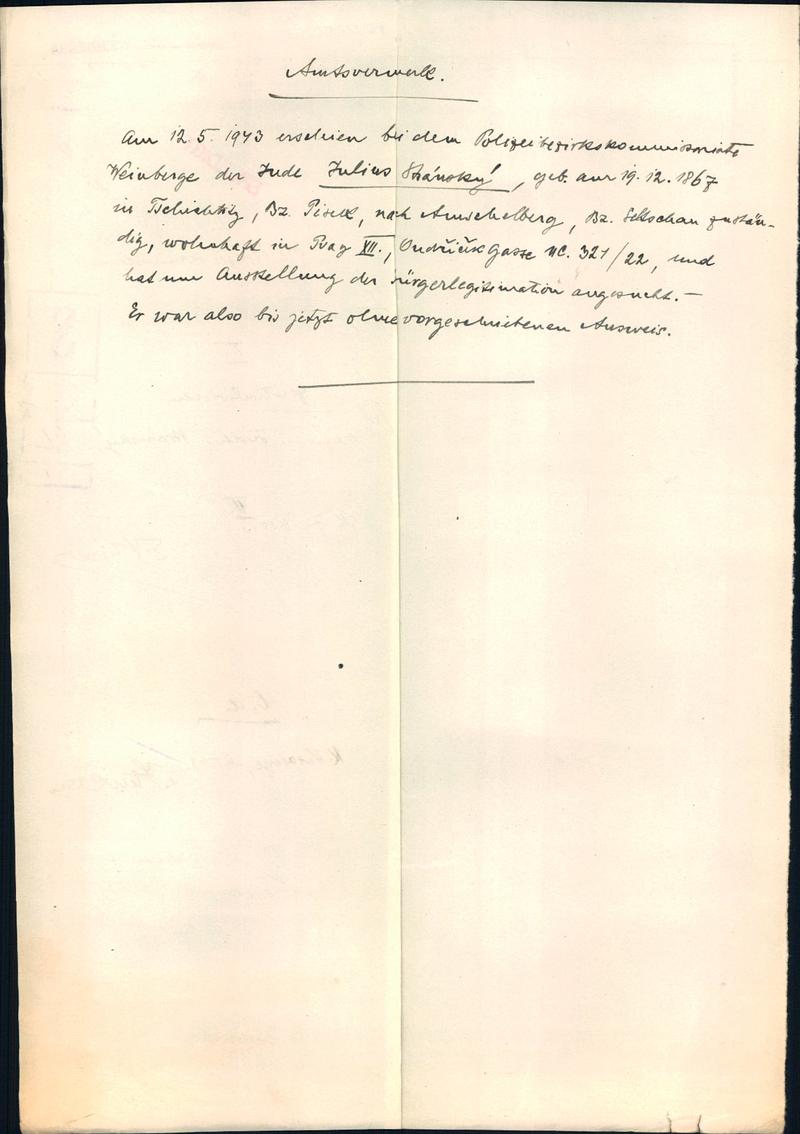 Amtsvermerk.
Am 12. 5. 1943 erschien bei dem Polizeibezirkskommissariate
Weinberge der Jude Julius Stránský, geb. am 19. 12. 1867
in , Bz. Pisek, nach Amschelberg, Bz. Seltschan zustän-
dig, wohnhaft in Prag XII., Ondříčekgasse NC. 321/22, und
hat um Ausstellung der Bürgerlegitimation angesucht. —
Er war also bis jetzt ohne vorgeschriebenen Ausweis.